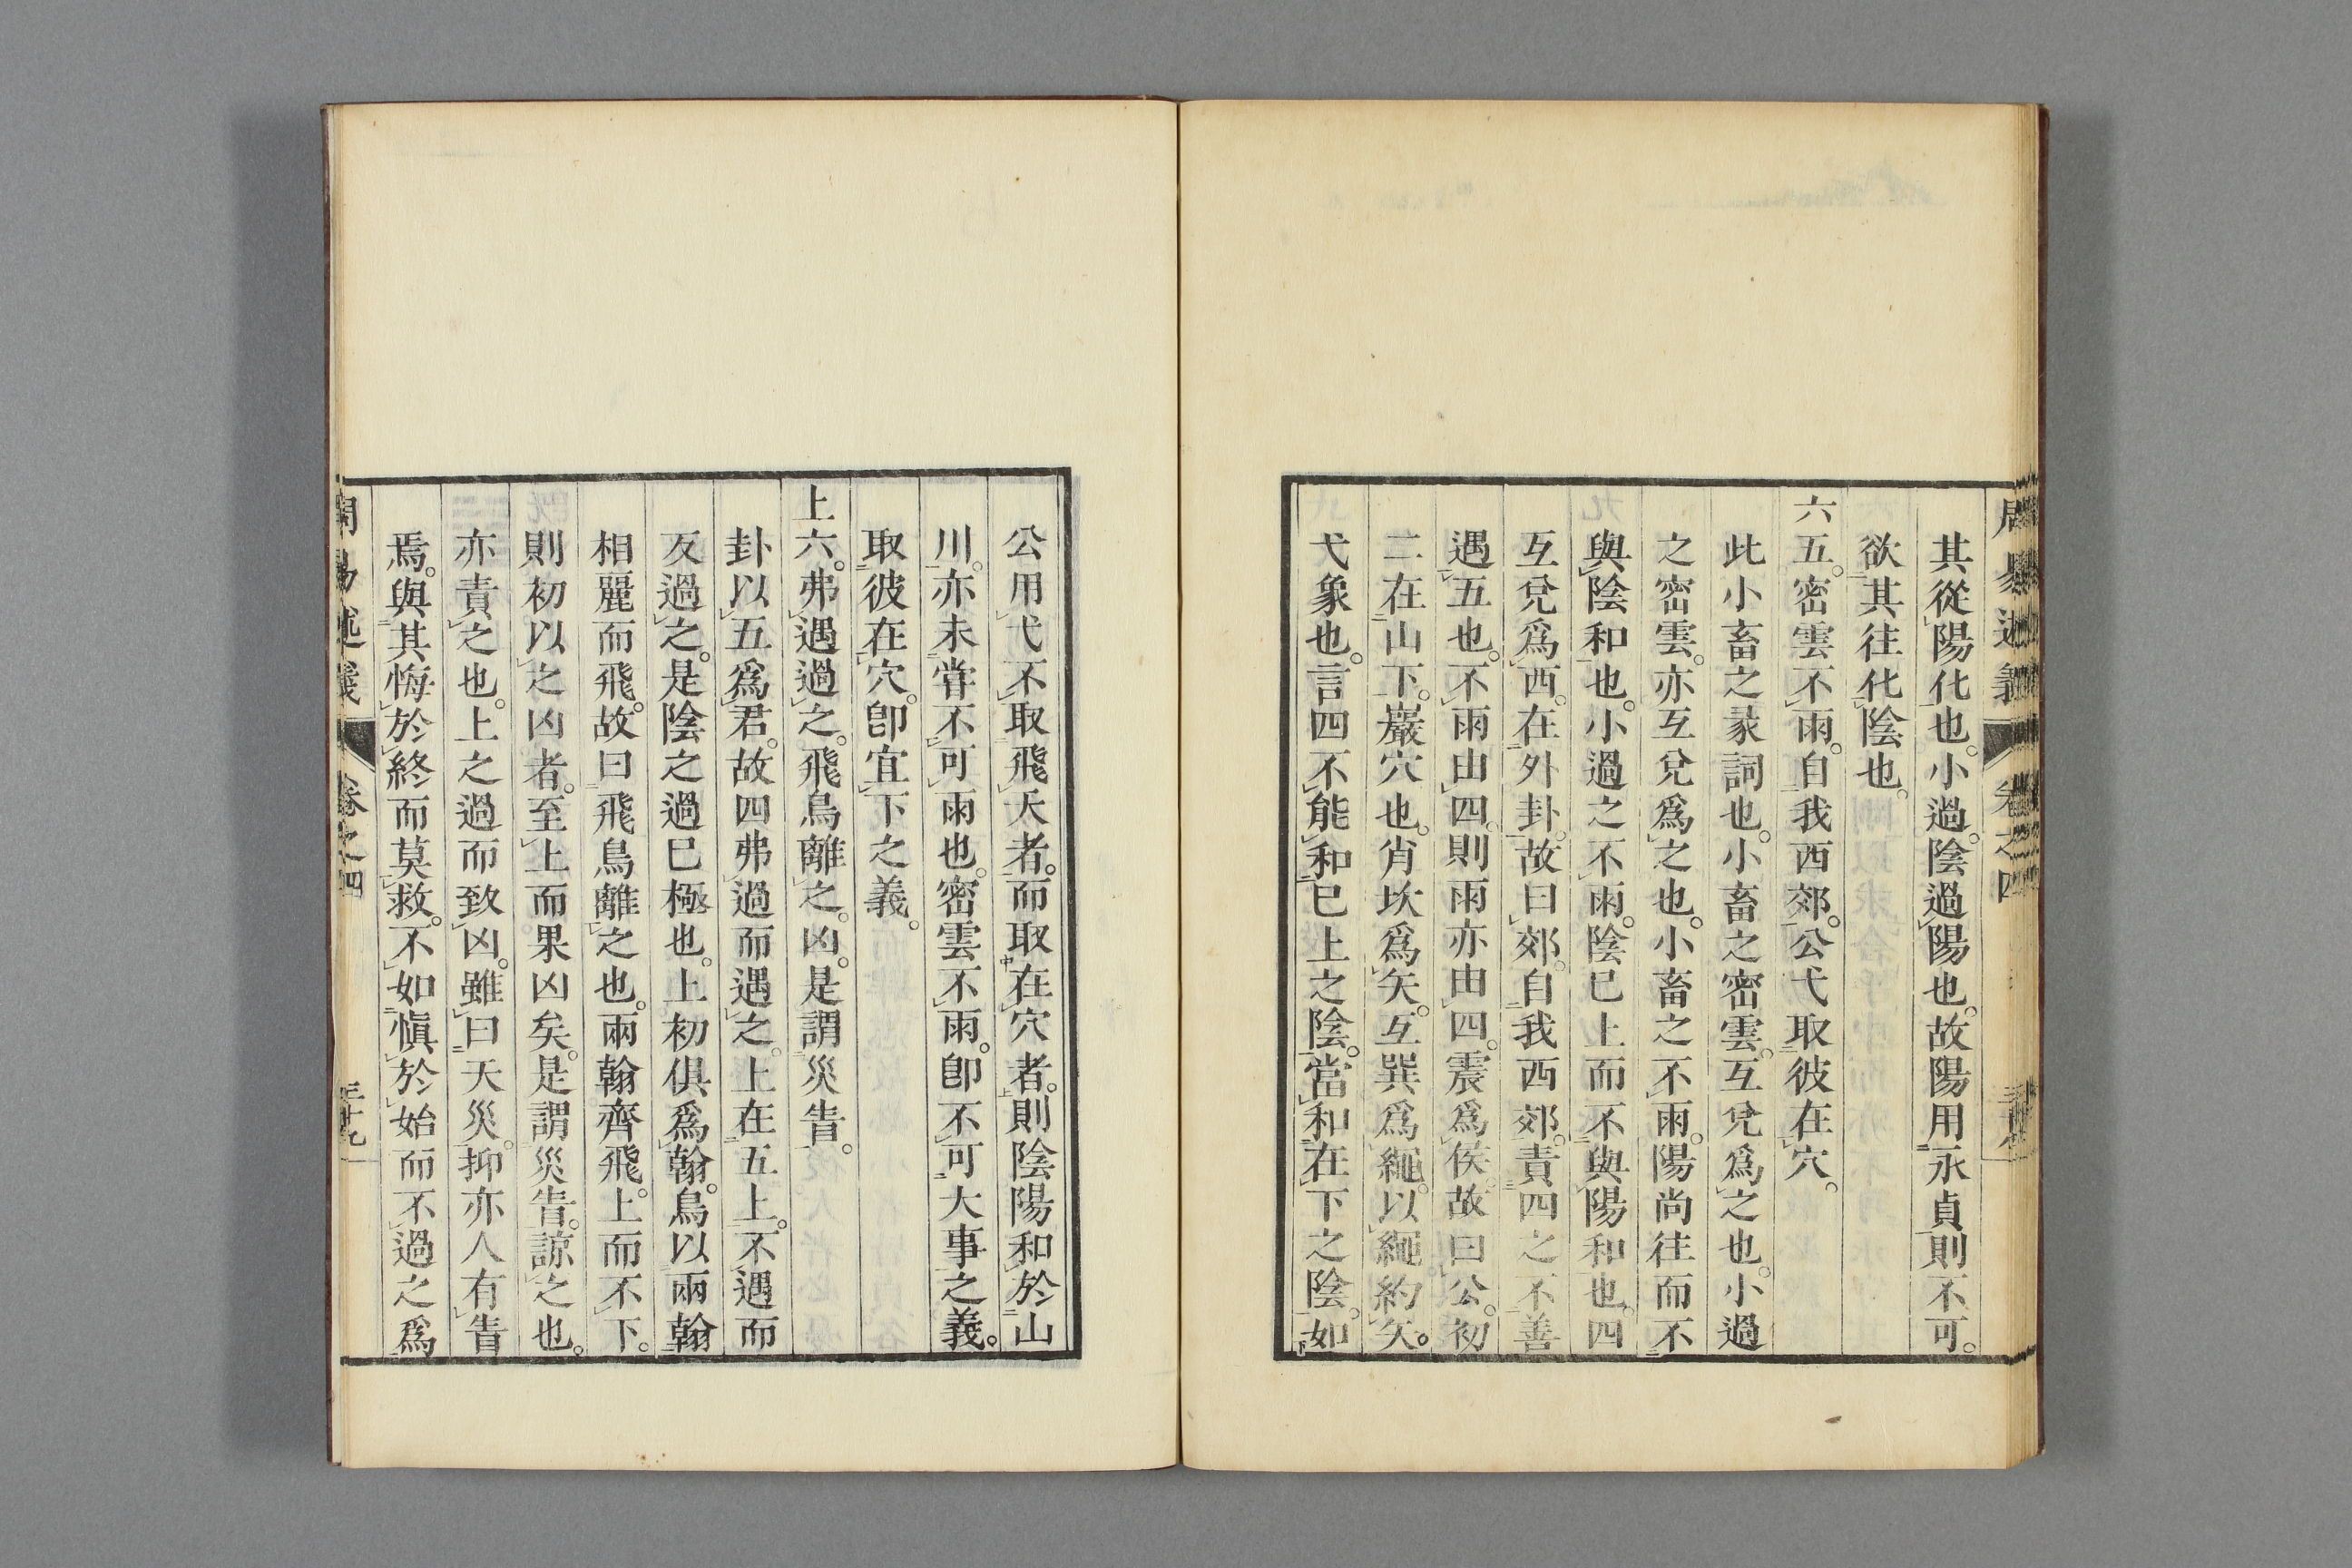 其從陽化也。小過。陰過陽也。故陽用永貞則不可。
欲其往化陰也。
六五。密雲不雨。自我西郊。公弋取彼在穴。
此小畜之彖詞也。小畜之密雲。互兌爲之也。小過
之密雲。亦互兌爲之也。小畜之不雨。陽尚往而不
與陰和也。小過之不雨。陰已上而不與陽和也。四
互兌爲西。在外卦。故曰郊。自我西郊。責四之不善
遇五也。不雨由四。則雨亦由四。震爲侯。故曰公。初
二在山下。巖穴也。肖坎爲矢。互巽爲繩。以繩約矢。
弋象也。言四不能和已上之陰。當和在下之陰。如
公用弋不取飛天者。而取在穴者。則陰陽和於山
川。亦未甞不可雨也。密雲不雨。卽不可大事之義。
取彼在穴。卽宜下之義。
上六。弗遇過之。飛鳥離之。凶。是謂災眚。
卦以五爲君。故四弗過而遇之。上在五上。不遇而
反過之。是陰之過已極也。上初俱爲翰。鳥以兩翰
相麗而飛。故曰飛鳥離之也。兩翰齊飛。上而不下。
則初以之凶者。至上而果凶矣。是謂災眚。諒之也。
亦責之也。上之過而致凶。雖曰天災。抑亦人有眚
焉。與其悔於終而莫救。不如愼於始而不過之爲
周易述義 卷之四 三十九